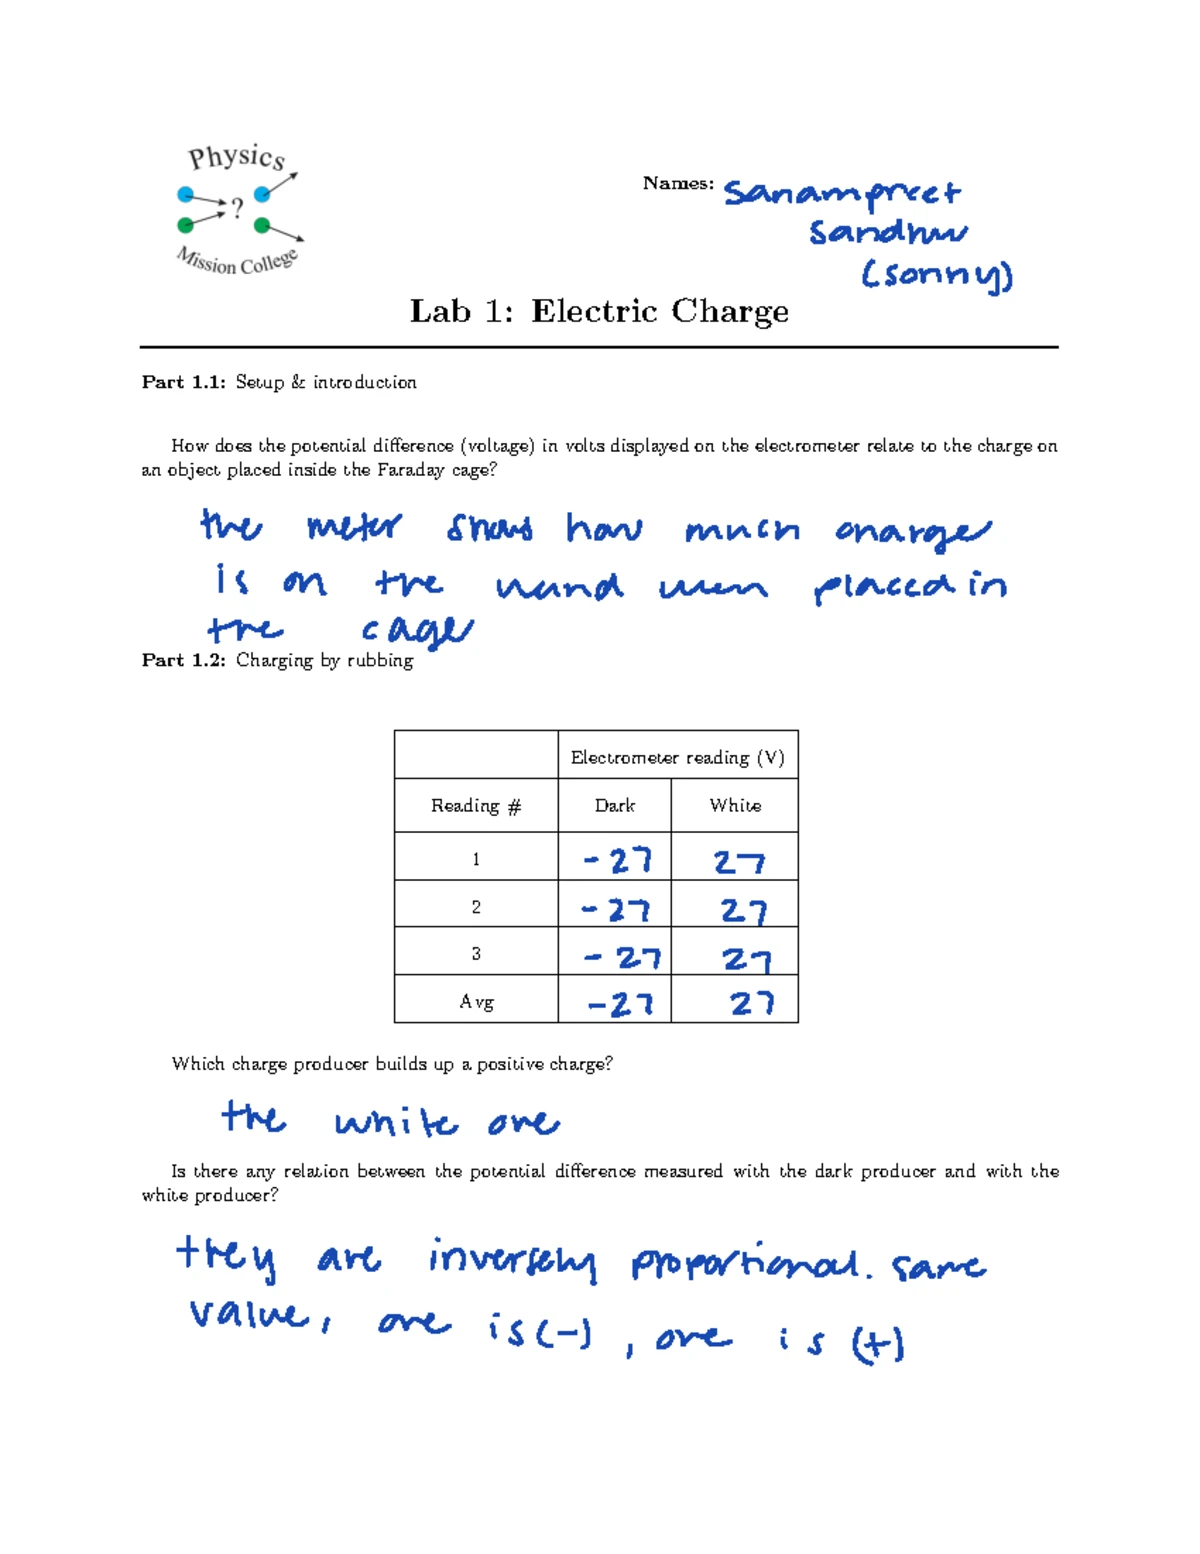 Physics
?
Mission College
Names: Sanampreet
Sandhu
(sonny)
Lab 1: Electric Charge
Part 1.1: Setup & introduction
How does the potential difference (voltage) in volts displayed on the electrometer relate to the charge on
an object placed inside the Faraday cage?
the meter shows how much charge
is on the wand when placed in
the cage
Part 1.2: Charging by rubbing
Electrometer reading (V)
Reading # Dark White
1 -27 27
2 -27 27
3 -27 27
Avg -27 27
Which charge producer builds up a positive charge?
the white one
Is there any relation between the potential difference measured with the dark producer and with the
white producer?
they are inversely proportional. same
value, one is (-), one is (+)